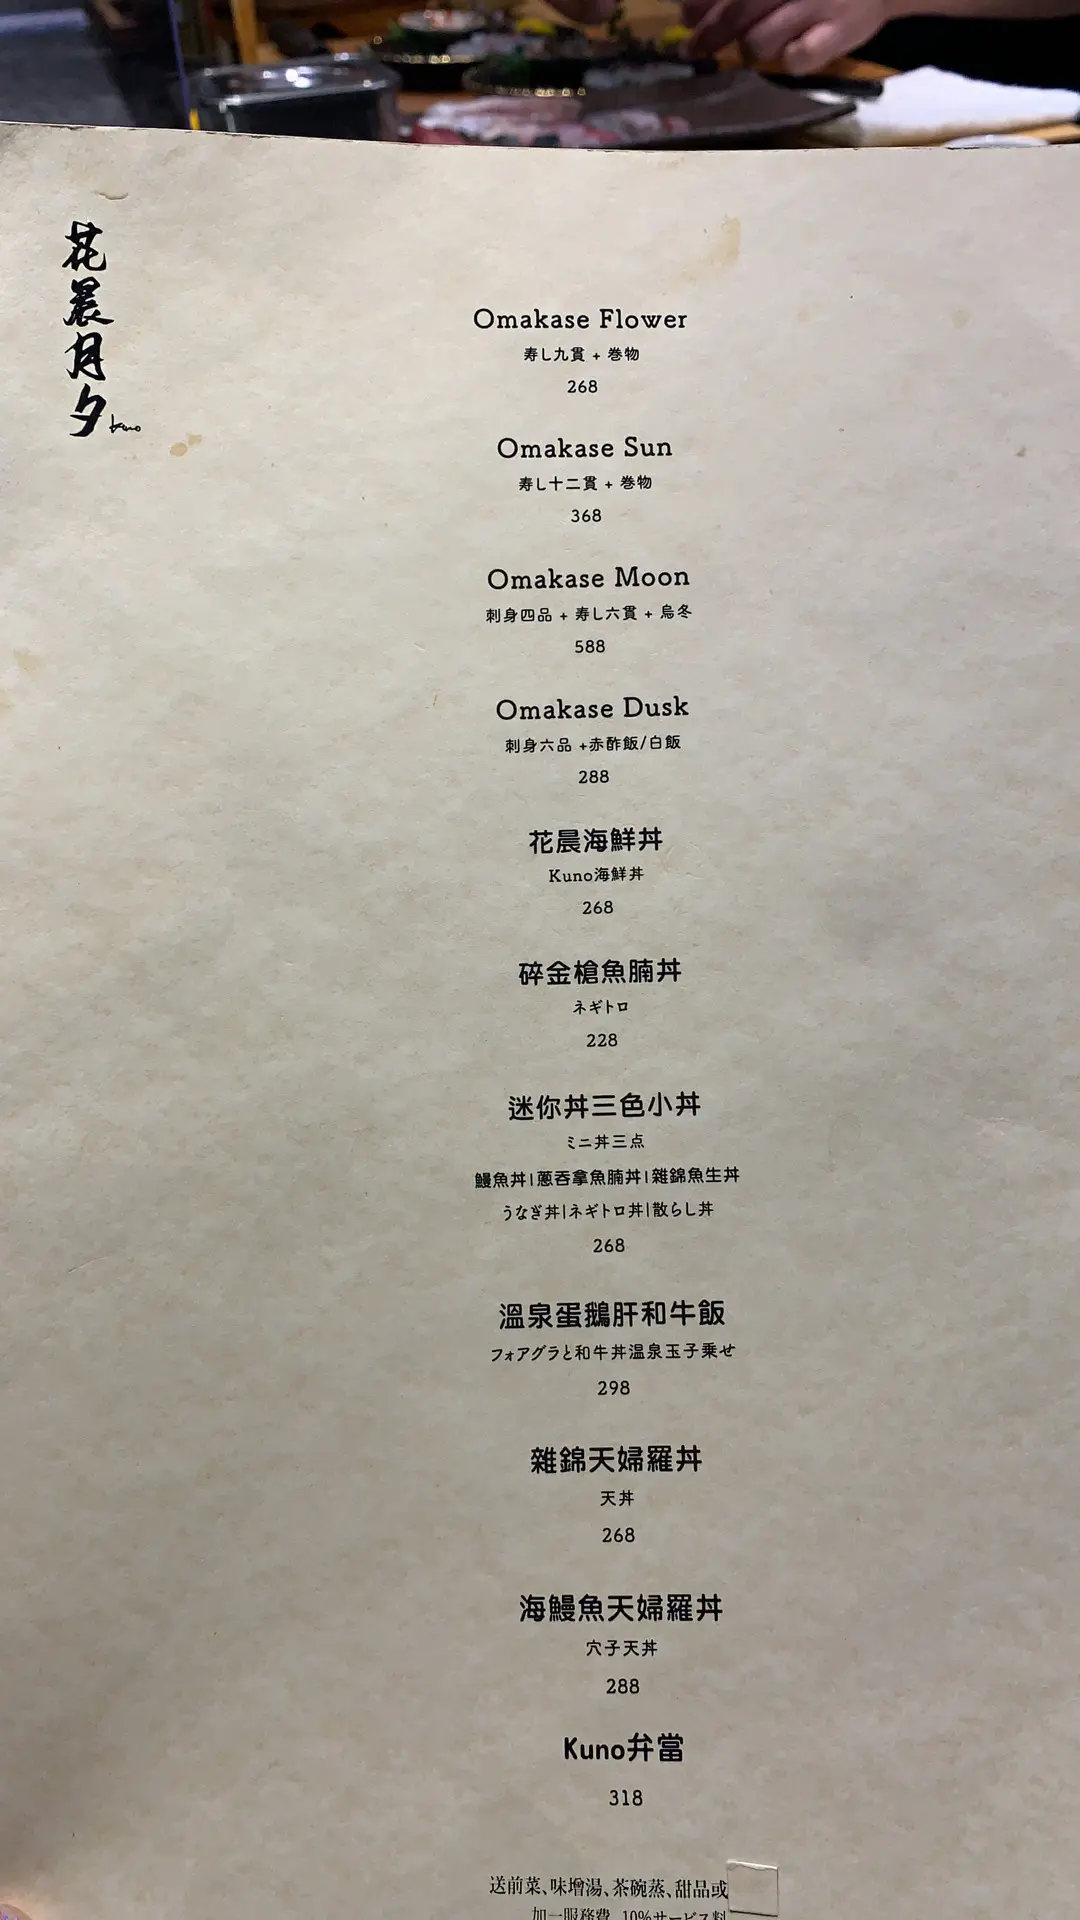 花晨月夕
kuno
Omakase Flower
寿し九貫 + 巻物
268
Omakase Sun
寿し十二貫 + 巻物
368
Omakase Moon
刺身四品 + 寿し六貫 + 烏冬
588
Omakase Dusk
刺身六品 +赤酢飯/白飯
288
花晨海鮮丼
Kuno海鮮丼
268
碎金槍魚腩丼
ネギトロ
228
迷你丼三色小丼
ミニ丼三点
鰻魚丼|蔥吞拿魚腩丼|雜錦魚生丼
うなぎ丼|ネギトロ丼|散らし丼
268
溫泉蛋鵝肝和牛飯
フォアグラと和牛丼温泉玉子乗せ
298
雜錦天婦羅丼
天丼
268
海鰻魚天婦羅丼
穴子天丼
288
Kuno弁當
318
送前菜、味增湯、茶碗蒸、甜品或
加一服務費 10%サービス料